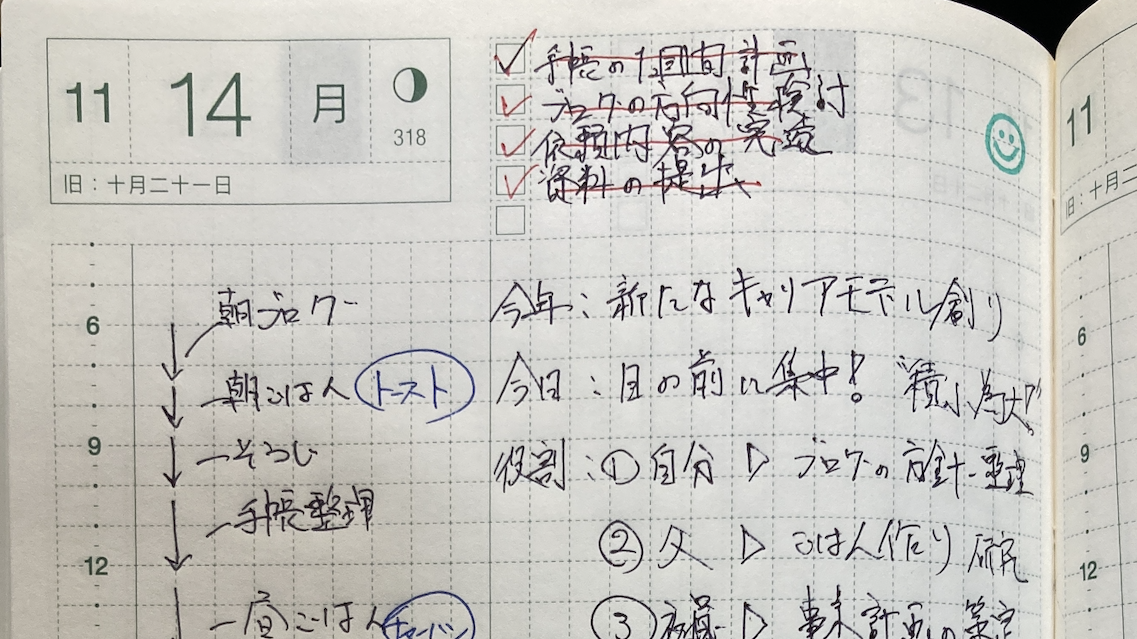 11 14 月
318
旧：十月二十一日
手帳の1週間計画
ブログの方向性検討
依頼内容の完遂
資料の提出
6
9
12
朝ブログ
朝ごはん トースト
そうじ
手帳整理
昼ごはん チャーハン
今年：新たなキャリアモデル創り
今日：目の前に集中！ "積小為大"
役割：① 自分 ▷ ブログの方針整理
② 父 ▷ ごはん作り
③ ▷ 事業計画の策定
11
旧：十月二
6
9
12